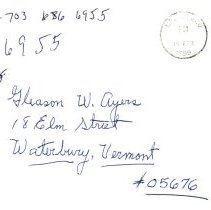 - 703 686 6955
6955
Gleason W. Ayers
18 Elm Street
Waterbury, Vermont
#05676